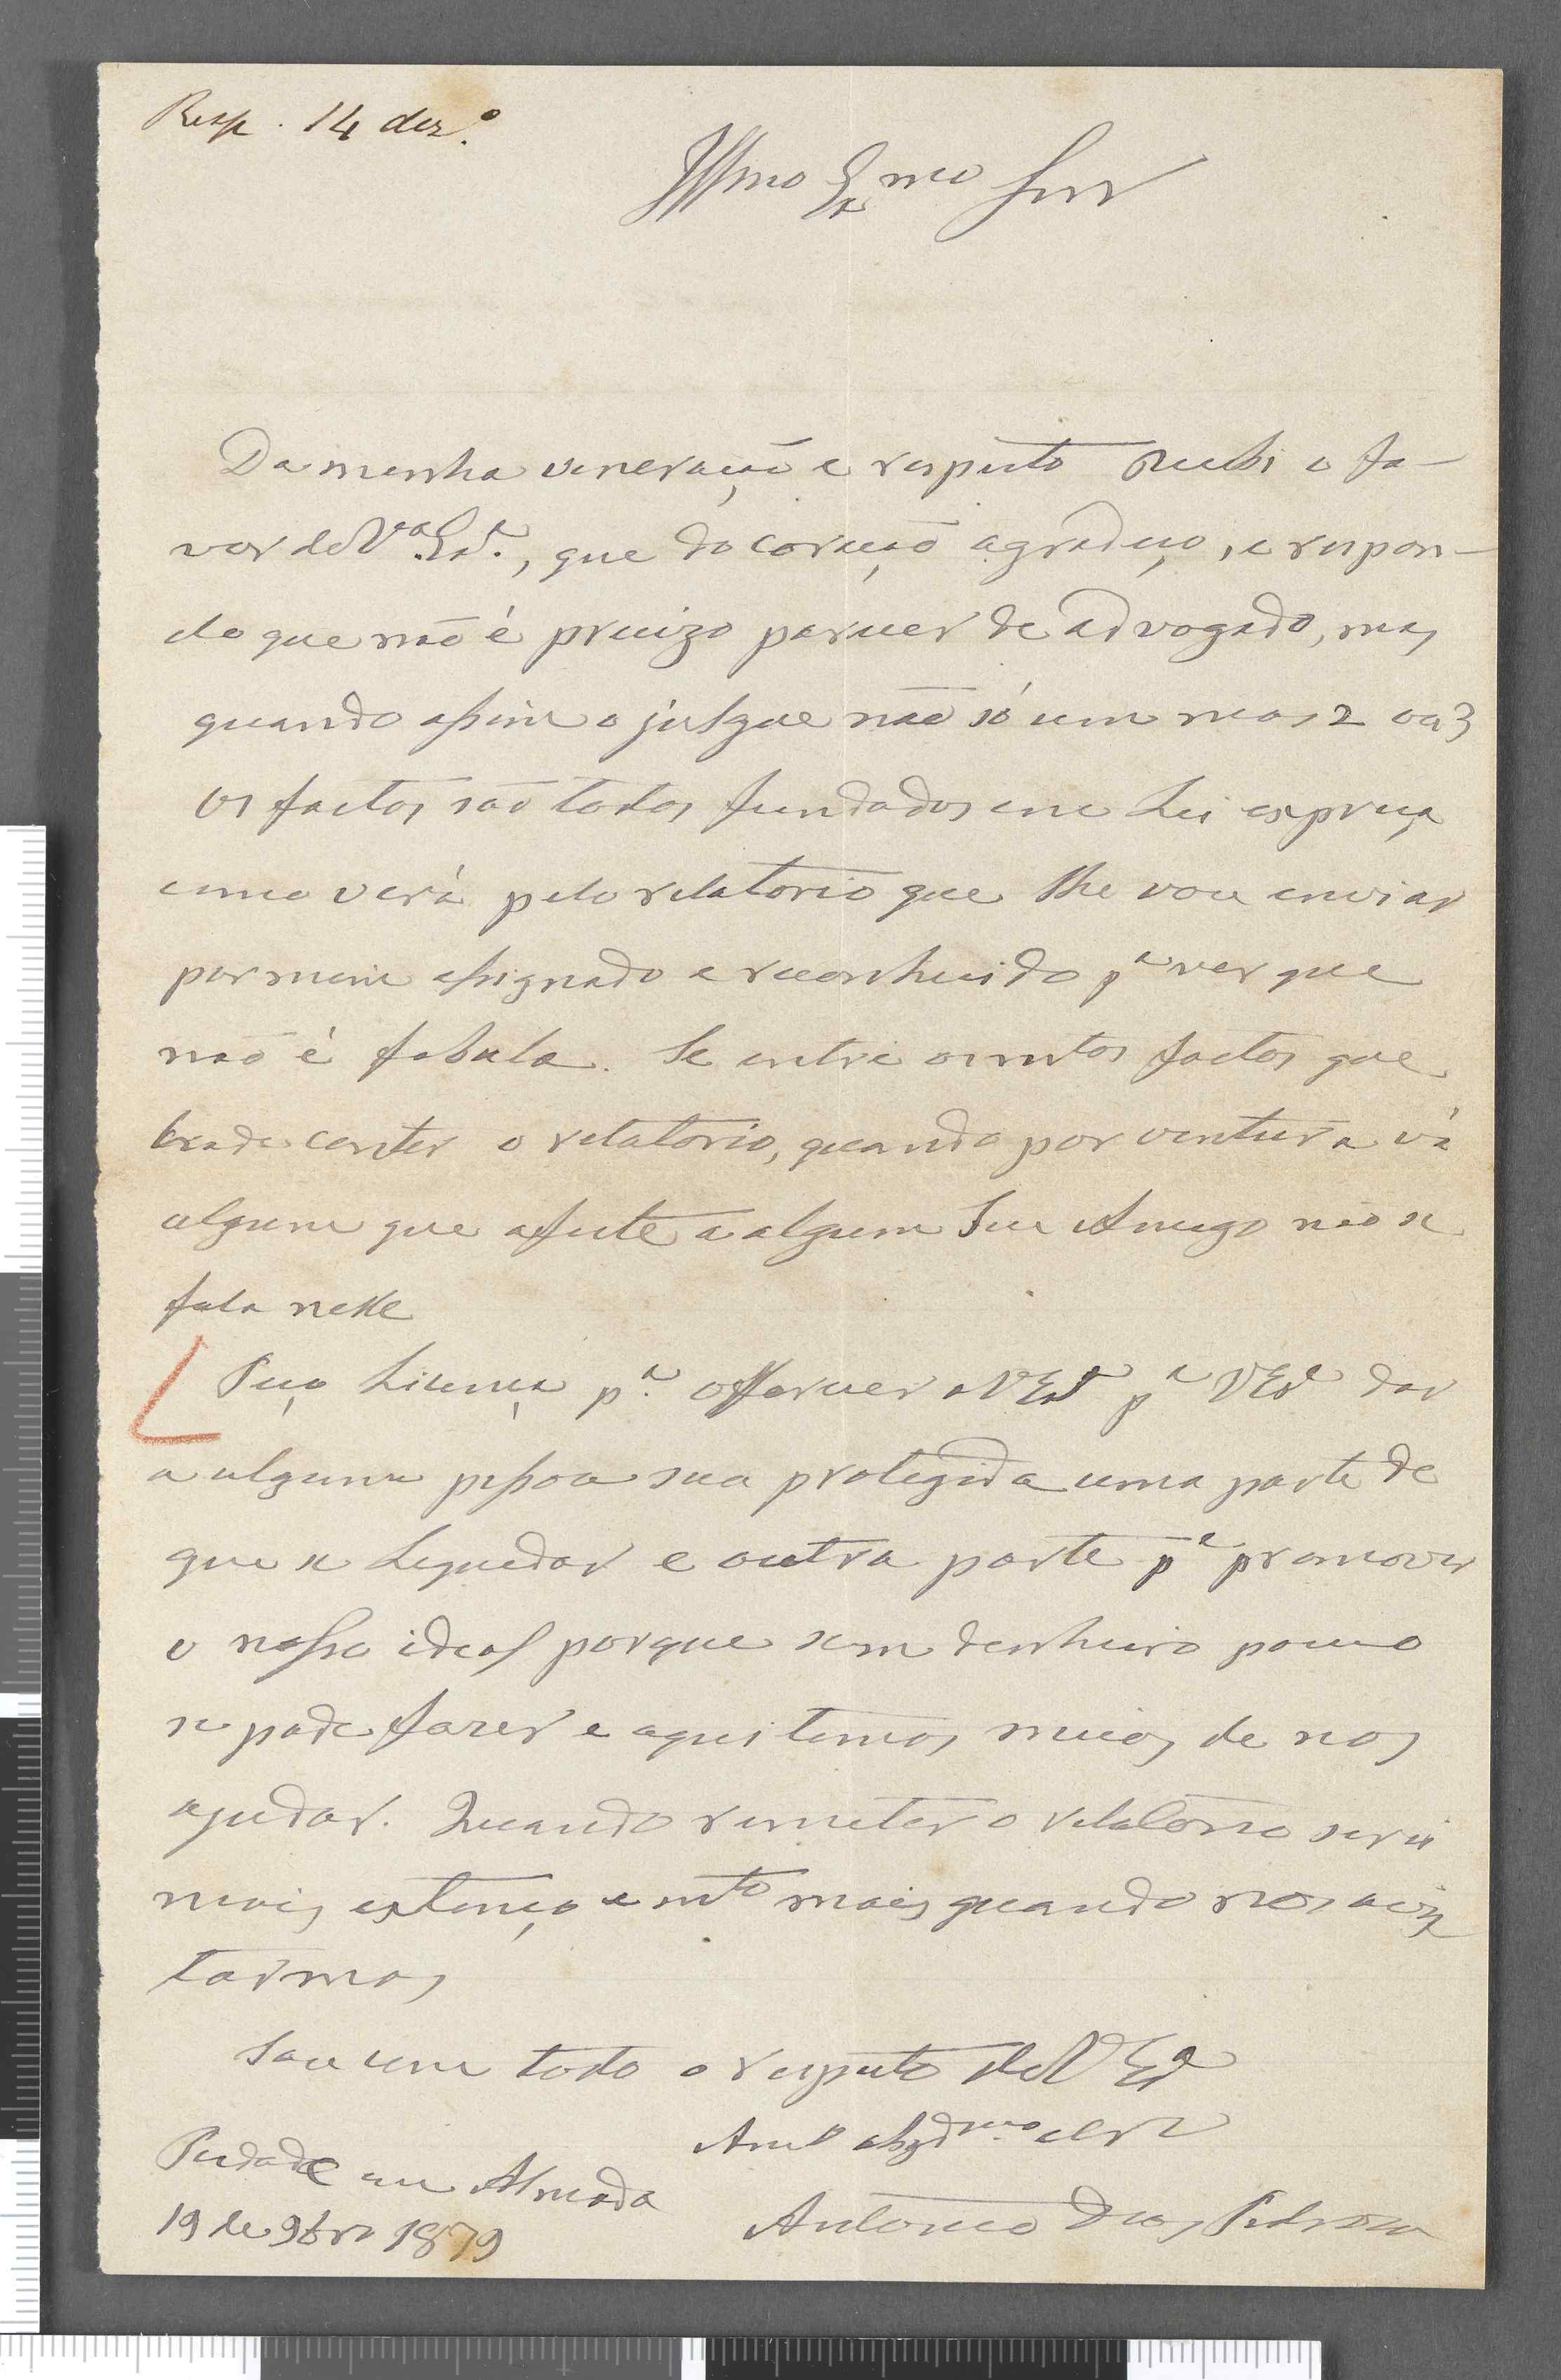 Resp. 14 dezº.
Illmo Exmo Snr
Da minha veneração e respeito recebi o fa-
vor de Vª. Exª., que do coração agradeço, e respon-
do que não é precizo parecer de advogado, mas
quando assim o julgue não só um mas 2 ou 3
os factos são todos fundados em Lei expreça
como verá pelo relatorio que lhe vou enviar
por mim assignado e reconhecido pª ver que
não é fabula. Se entre os mtos factos que
hade conter o relatorio, quando por ventura vá
algum que afecte a algum Seu Amigo não se
fala nelle
Peço Licença pª. offerecer a V Exª pª V Exª dar
a alguma pessoa sua protegida uma parte do
que se Lequedar e outra parte pª promover
o nosso ideal porque sem denheiro pouco
se pode fazer e aqui temos meios de nos
ajudar. Quando remeter o relatorio serei
mais extenço e mto mais quando nos avis
tarmos
Sou com todo o respeito de V Exª
Amº obgdmo
Piedade em Almada
19 de 9bro 1879
Antonio Dias Pedroso